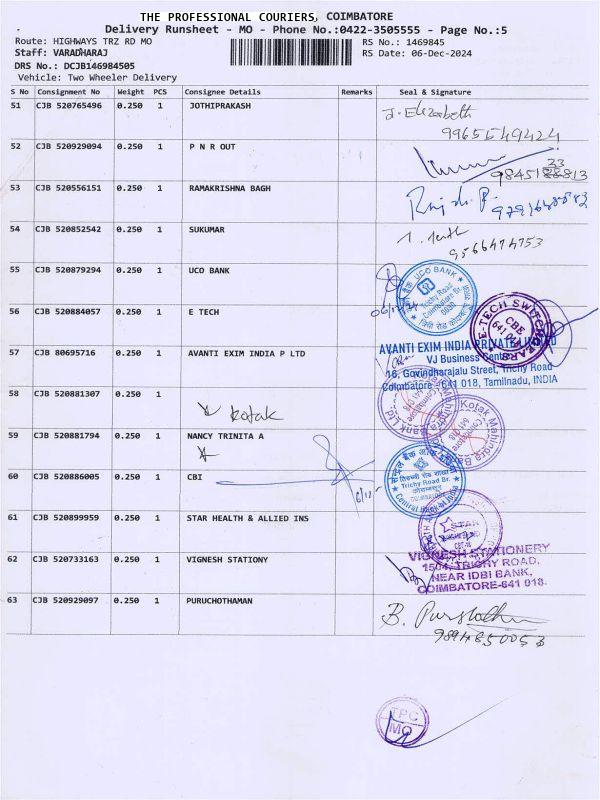 THE PROFESSIONAL COURIERS, COIMBATORE
Delivery Runsheet - MO - Phone No.:0422-3505555 - Page No.:5
Route: HIGHWAYS TRZ RD MO
RS No.: 1469845
Staff: VARADHARAJ
RS Date: 06-Dec-2024
DRS No.: DCJB146984505
Vehicle: Two Wheeler Delivery
S No Consignment No Weight PCS Consignee Details Remarks Seal & Signature
51 CJB 520765496 0.250 1 JOTHIPRAKASH
J. Elizabeth
9965549424
52 CJB 520929094 0.250 1 P N R OUT
53 CJB 520556151 0.250 1 RAMAKRISHNA BAGH
54 CJB 520852542 0.250 1 SUKUMAR
9566474753
55 CJB 520879294 0.250 1 UCO BANK
UCO BANK
Trichy Road
Coimbatore Br.
56 CJB 520884057 0.250 1 E TECH
E-TECH SWITCHGEARS
CBE
57 CJB 80695716 0.250 1 AVANTI EXIM INDIA P LTD
AVANTI EXIM INDIA PRIVATE LIMITED
VJ Business Centre
16, Govindharajalu Street, Trichy Road
Coimbatore - 641 018, Tamilnadu, INDIA
58 CJB 520881307 0.250 1
kotak
Kotak Mahindra Bank Ltd
Coimbatore
641 018
59 CJB 520881794 0.250 1 NANCY TRINITA A
60 CJB 520886005 0.250 1 CBI
Trichy Road Br.
Central Bank of India
61 CJB 520899959 0.250 1 STAR HEALTH & ALLIED INS
STAR
62 CJB 520733163 0.250 1 VIGNESH STATIONY
VIGNESH STATIONERY
1504, TRICHY ROAD,
NEAR IDBI BANK,
COIMBATORE-641 018.
63 CJB 520929097 0.250 1 PURUCHOTHAMAN
9894850053
TPC
MO